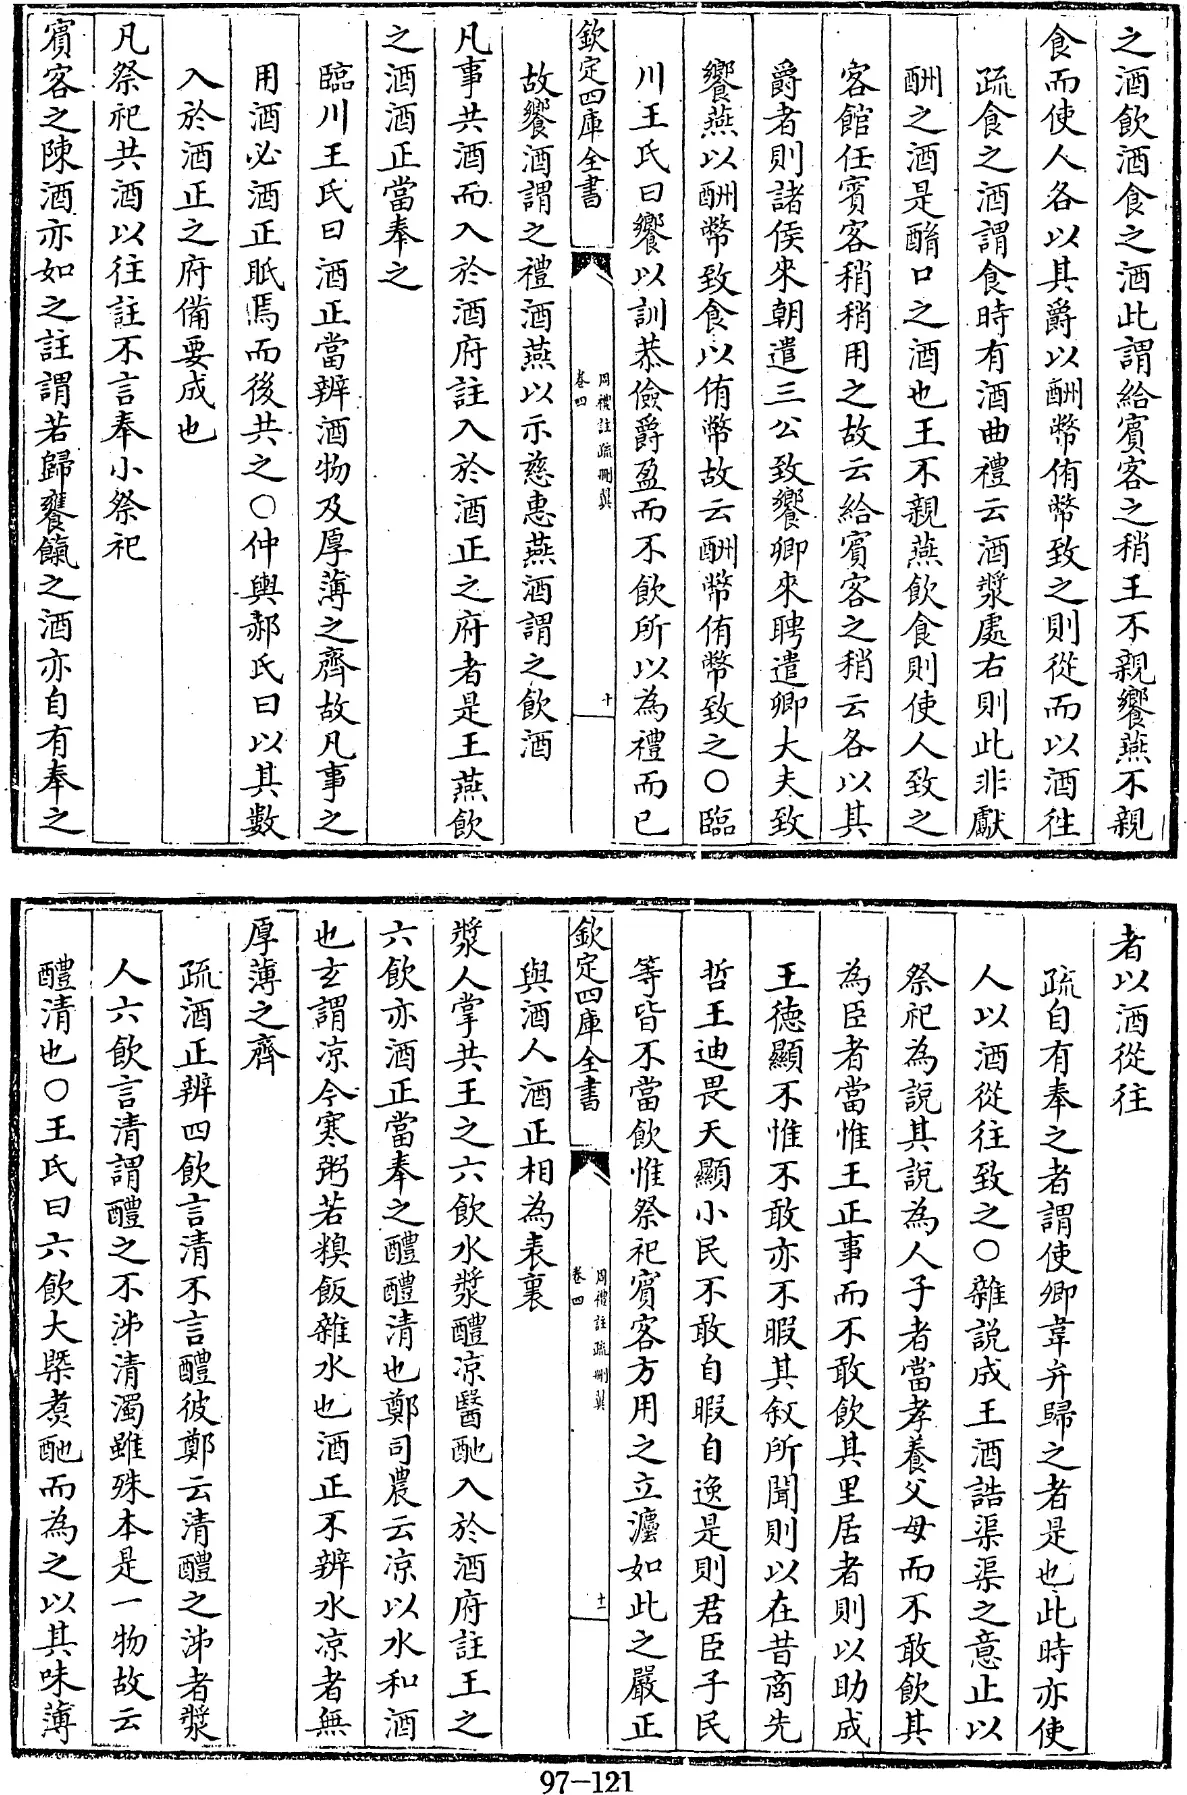 之酒飲酒食之酒此謂給賓客之稍王不親饗燕不親
食而使人各以其爵以酬幣侑幣致之則從而以酒往
疏食之酒謂食時有酒曲禮云酒漿處右則此非獻
酬之酒是酳口之酒也王不親燕飲食則使人致之
客館任賓客稍稍用之故云給賓客之稍云各以其
爵者則諸侯來朝遣三公致饗卿來聘遣卿大夫致
饗燕以酬幣致食以侑幣故云酬幣侑幣致之○臨
川王氏曰饗以訓恭儉爵盈而不飲所以為禮而已
欽定四庫全書
周禮註疏刪翼
卷四
十
故饗酒謂之禮酒燕以示慈惠燕酒謂之飲酒
凡事共酒而入於酒府註入於酒正之府者是王燕飲
之酒酒正當奉之
臨川王氏曰酒正當辨酒物及厚薄之齊故凡事之
用酒必酒正眂焉而後共之○仲輿郝氏曰以其數
入於酒正之府備要成也
凡祭祀共酒以往註不言奉小祭祀
賓客之陳酒亦如之註謂若歸饔餼之酒亦自有奉之
者以酒從往
疏自有奉之者謂使卿韋弁歸之者是也此時亦使
人以酒從往致之○雜說成王酒誥渠渠之意止以
祭祀為說其說為人子者當孝養父母而不敢飲其
為臣者當惟王正事而不敢飲其里居者則以助成
王德顯不惟不敢亦不暇其叙所聞則以在昔商先
哲王迪畏天顯小民不敢自暇自逸是則君臣子民
等皆不當飲惟祭祀賓客方用之立灋如此之嚴正
欽定四庫全書
周禮註疏刪翼
卷四
十一
與酒人酒正相為表裏
漿人掌共王之六飲水漿醴凉醫酏入於酒府註王之
六飲亦酒正當奉之醴醴清也鄭司農云凉以水和酒
也玄謂凉今寒粥若糗飯雜水也酒正不辨水凉者無
厚薄之齊
疏酒正辨四飲言清不言醴彼鄭云清醴之泲者漿
人六飲言清謂醴之不泲清濁雖殊本是一物故云
醴清也○王氏曰六飲大槩煑酏而為之以其味薄
97-121